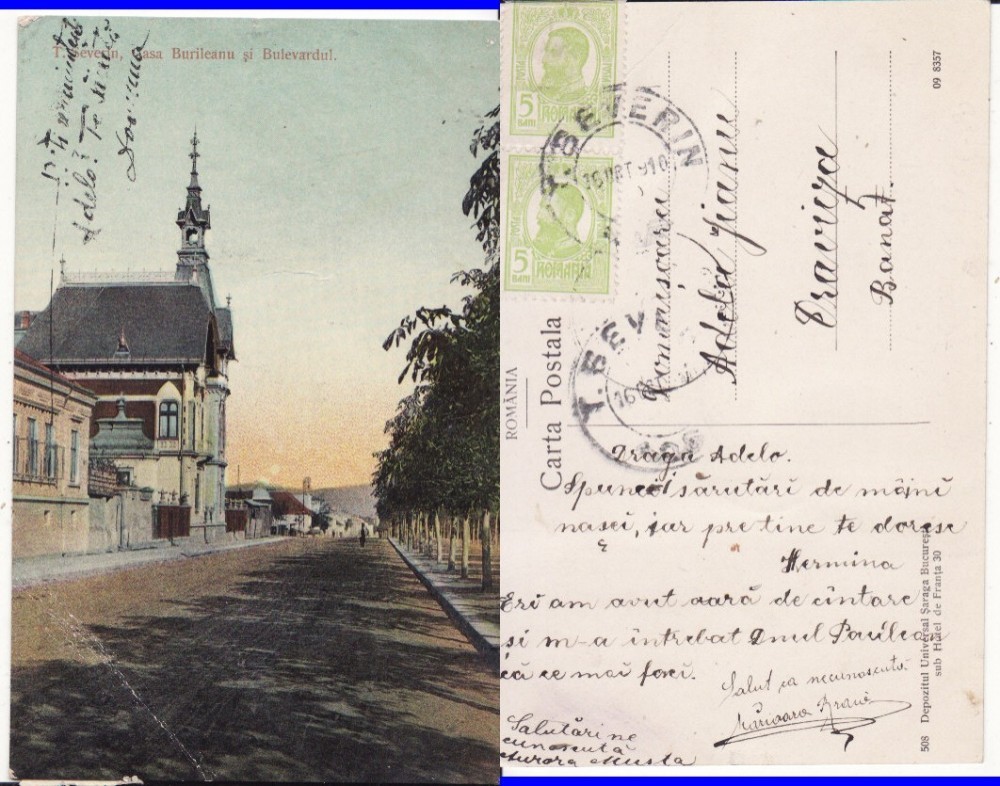 T. Severin, Casa Burileanu și Bulevardul.
Adelo? Te
5 BANI
ROMANIA
5 BANI
ROMANIA
T. SEVERIN
16 910
T. SEV
16
ROMÂNIA
Carta Postala
Domnișoarei
Adela Jianu
Oravița
Banat.
09 8357
Draga Adelo.
Spune sărutări de mâini
nașei, iar pe tine te doresc
Hermina
Eri am avut oară de cîntare
și m-a întrebat Dnul
că ce mai faci.
Salut ca necunoscută
Salutări ne
cunoscută
Aurora Musta
508 Depozitul Universal Șaraga București
sub Hotel de Franța 30